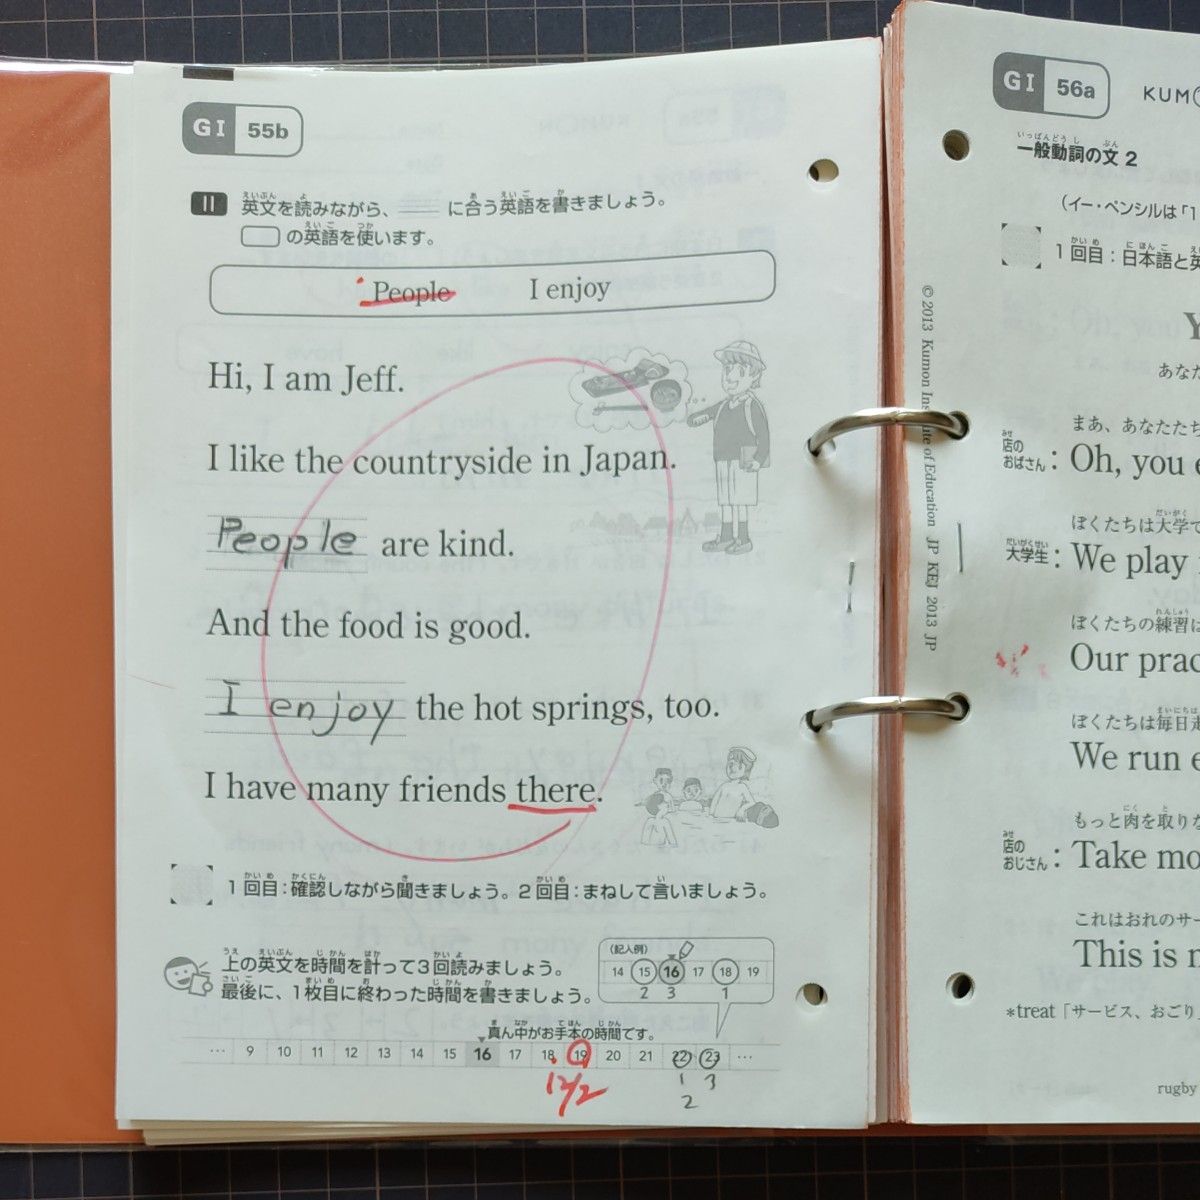 GI 55b
II 英文を読みながら、 に合う英語を書きましょう。
の英語を使います。
People I enjoy
Hi, I am Jeff.
I like the countryside in Japan.
People are kind.
And the food is good.
I enjoy the hot springs, too.
I have many friends there.
1回目：確認しながら聞きましょう。2回目：まねして言いましょう。
上の英文を時間を計って3回読みましょう。
最後に、1枚目に終わった時間を書きましょう。
（記入例）
14 15 16 17 18 19
2 3 1
真ん中がお手本の時間です。
… 9 10 11 12 13 14 15 16 17 18 19 20 21 22 23 …
12/2
1 3
2
GI 56a
KUM
一般動詞の文 2
（イー・ペンシルは「1
1回目：日本語と英
© 2013 Kumon Institute of Education JP KEJ 2013 JP
Y
あなた
まあ、あなたたち
店のおばさん： Oh, you e
ぼくたちは大学で
大学生： We play
ぼくたちの練習は
Our prac
ぼくたちは毎日走
We run e
もっと肉を取りな
店のおじさん： Take mo
これはおれのサー
This is n
*treat「サービス、おごり」
rugby